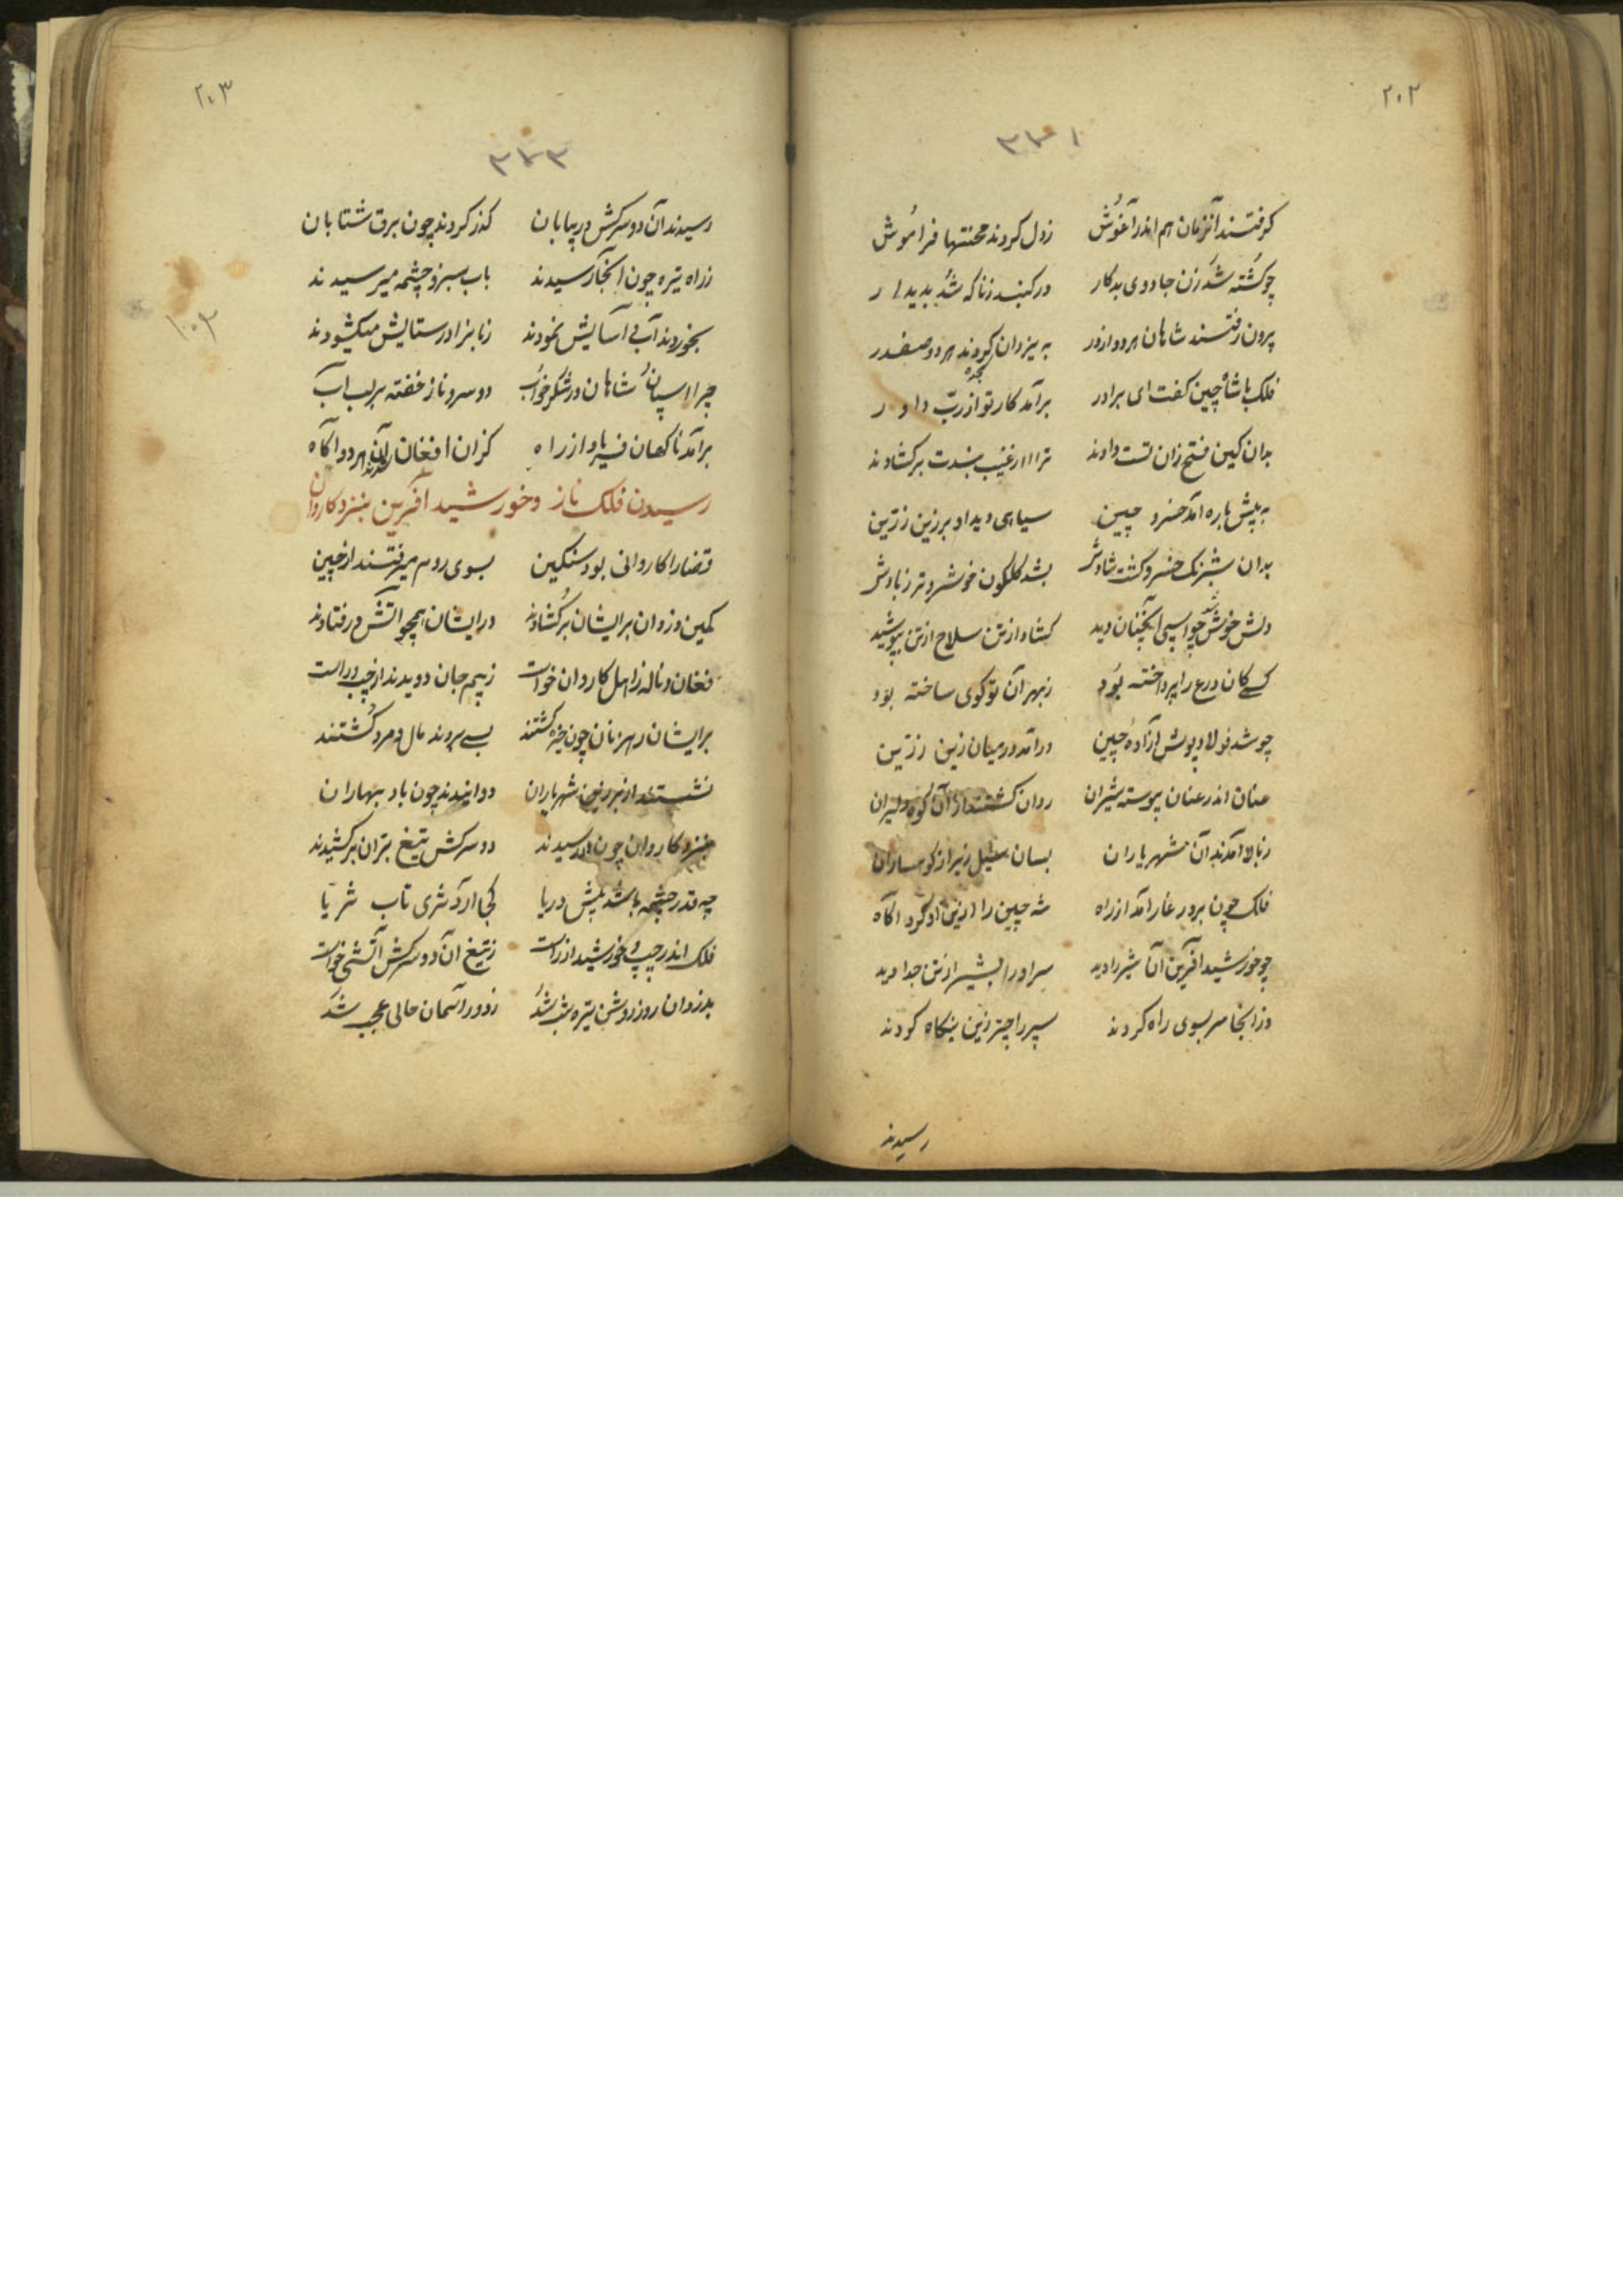 ۲۰۲
۳۳۱
کرفتند آنزمان هم اندر آغوش زدل کردند محنتها فراموش
چو کشته شد زن جادوی بدکار در کنبد زناکه شد پدیدار
برون رفتند شاهان هر دو از در به یزدان سجده کردند هر دو صفدر
فلک با شاه چین کفت ای برادر برآمد کار تو از رب داور
بدان کین فتح زان تست دادند ترا از غیب بندت برکشادند
به پیش باره آمد خسرو چین سیاهی دید او بر زین زرین
بدان شبرنک خسرو کشت شادش بشد کلکون خوشرو تر ز بادش
دلش خوش شد چو اسپی آنچنان دید کشاد از تن سلاح از تن بپوشید
کسے کان درع را پرداخته بود زبهر آن تو کوی ساخته بود
چو شد فولادپوش آزاده چین درآمد در میان زین زرین
عنان اندر عنان پیوسته شیران روان کشتند از آن کوه دلیران
زبالا آمدند آن شهریاران بسان سیل زیر از کوهساران
فلک چون بر در غار آمد از راه شه چین را ازین او کرد اکاه
چو خورشید آفرین آن شیر را دید سر او را بشیر از تن جدا دید
وز آنجا سر بسوی راه کردند سپر را چتر زین بنکاه کردند
رسیدند
۲۰۳
۳۳۳
۱۰۲
رسیدند آن دو سرکش در بیابان کذر کردند چون برق شتابان
زراه تیره چون آنجا رسیدند باب سبز و چشمه میرسیدند
بخوردند آب و آسایش نمودند زبانرا در ستایش میکشودند
چرا اسپان شاهان در شکرخواب دو سرو ناز خفته بر لب آب
برآمد ناکهان فریاد از راه کزان افغان شدند آن هر دو آکاه
رسیدن فلک ناز و خورشید آفرین بنزد کاروان
قضارا کاروانی بود سنکین بسوی روم میرفتند از چین
کمین دزدان بر ایشان برکشادند در ایشان همچو آتش در فتادند
فغان و ناله زاهل کاروان خواست زبیم جان دویدند از چپ و راست
بر ایشان رهزنان چون خیره کشتند بسے بردند مال و مرد کشتند
نشستند از بر زین شهریاران دوانیدند چون باد بهاران
بنزد کاروان چون در رسیدند دو سرکش تیغ بران برکشیدند
چه قدر چشمه باشد پیش دریا کجا آرد ثری تاب ثریا
فلک اندر چپ و خورشید از راست زتیغ آن دو سرکش آتشی خواست
بدزدان روز روشن تیره شب شد زدور آسمان حالی عجب شد